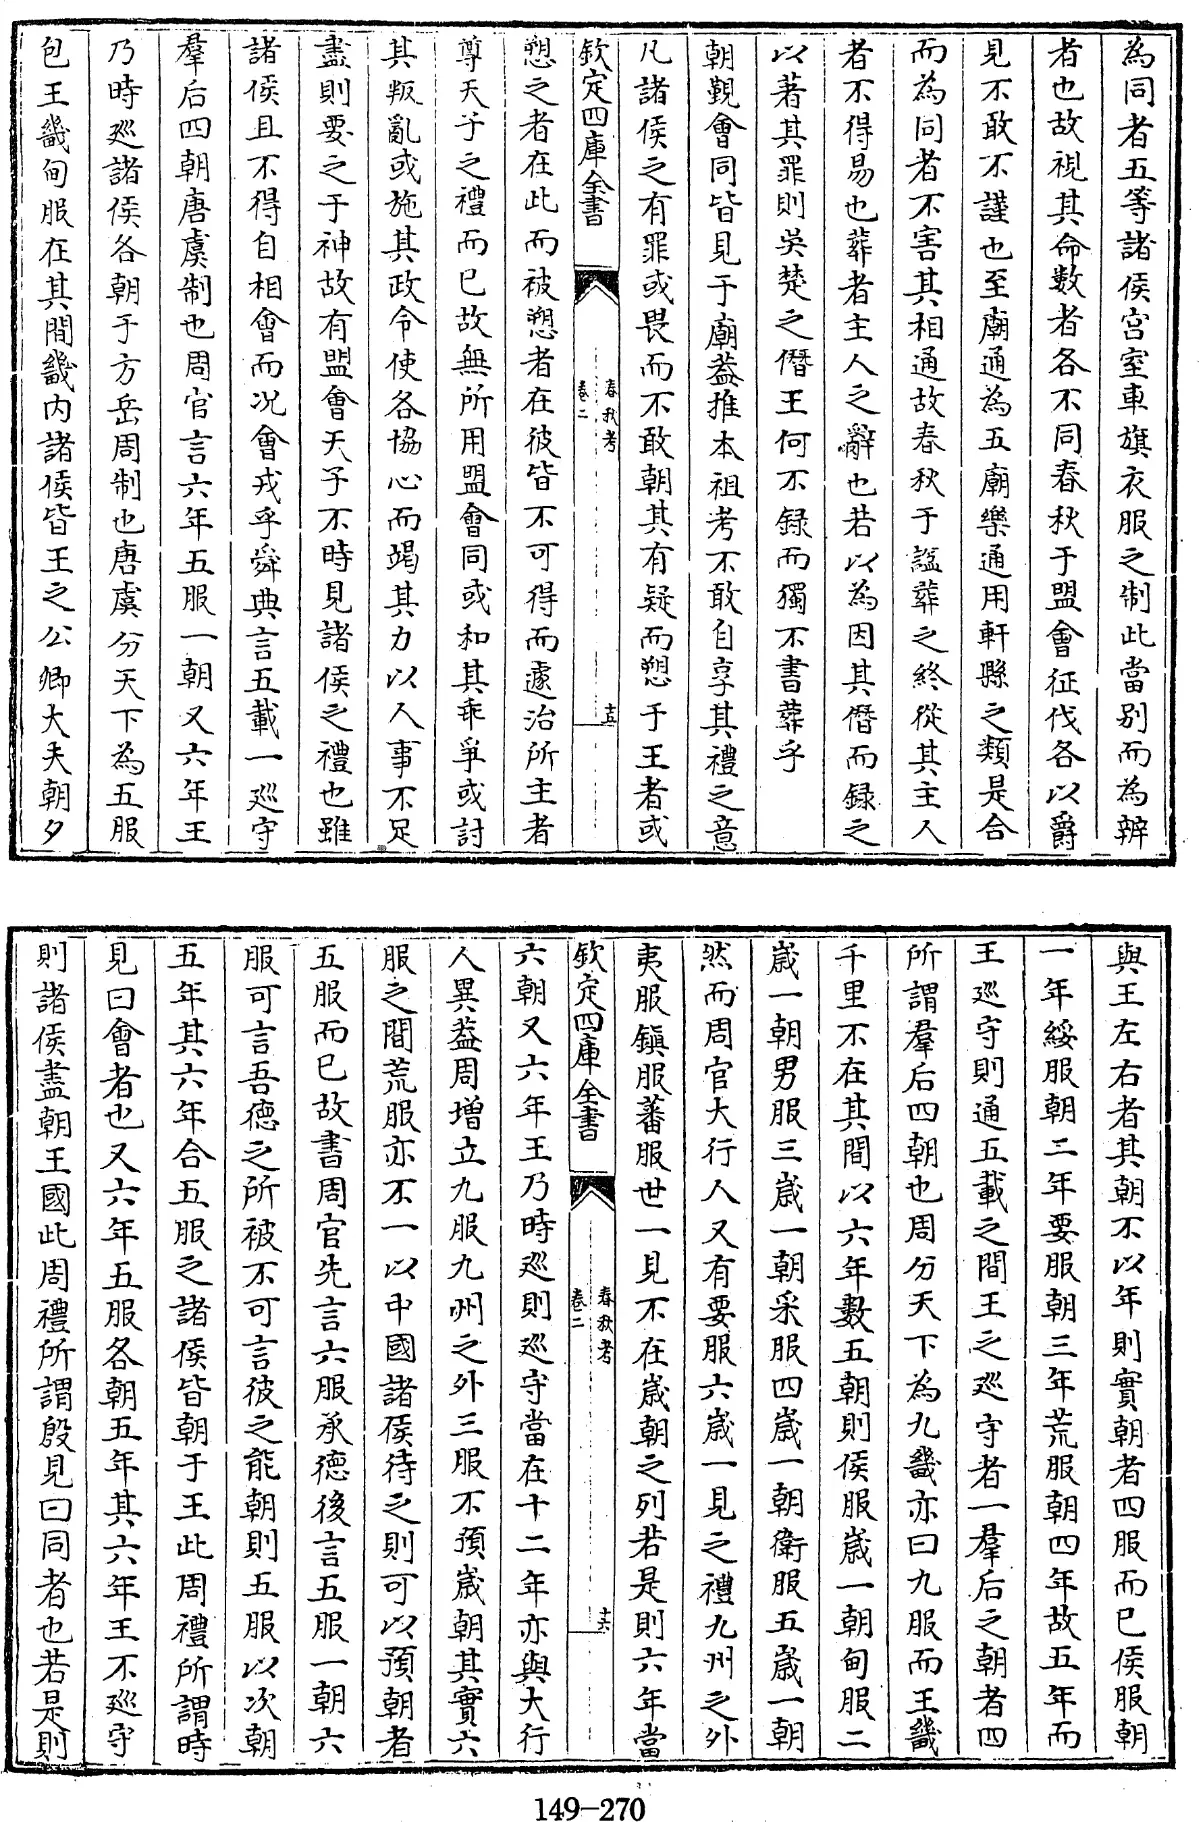 為同者五等諸侯宫室車旗衣服之制此當别而為辨
者也故視其命數者各不同春秋于盟會征伐各以爵
見不敢不謹也至廟通為五廟樂通用軒縣之類是合
而為同者不害其相通故春秋于諡葬之終從其主人
者不得易也葬者主人之辭也若以為因其僭而録之
以著其罪則吳楚之僭王何不録而獨不書葬乎
朝覲會同皆見于廟葢推本祖考不敢自享其禮之意
凡諸侯之有罪或畏而不敢朝其有疑而愬于王者或
欽定四庫全書
春秋考
卷二
十五
愬之者在此而被愬者在彼皆不可得而遽治所主者
尊天子之禮而已故無所用盟會同或和其乖爭或討
其叛亂或施其政令使各協心而竭其力以人事不足
盡則要之于神故有盟會天子不時見諸侯之禮也雖
諸侯且不得自相會而况會戎乎舜典言五載一廵守
羣后四朝唐虞制也周官言六年五服一朝又六年王
乃時廵諸侯各朝于方岳周制也唐虞分天下為五服
包王畿甸服在其間畿内諸侯皆王之公卿大夫朝夕
與王左右者其朝不以年則實朝者四服而已侯服朝
一年綏服朝二年要服朝三年荒服朝四年故五年而
王廵守則通五載之間王之廵守者一羣后之朝者四
所謂羣后四朝也周分天下為九畿亦曰九服而王畿
千里不在其間以六年數五朝則侯服歲一朝甸服二
歲一朝男服三歲一朝采服四歲一朝衛服五歲一朝
然而周官大行人又有要服六歲一見之禮九州之外
夷服鎮服蕃服世一見不在歲朝之列若是則六年當
欽定四庫全書
春秋考
卷二
十六
六朝又六年王乃時廵則廵守當在十二年亦與大行
人異葢周增立九服九州之外三服不預歲朝其實六
服之間荒服亦不一以中國諸侯待之則可以預朝者
五服而已故書周官先言六服承德後言五服一朝六
服可言吾德之所被不可言彼之能朝則五服以次朝
五年其六年合五服之諸侯皆朝于王此周禮所謂時
見曰會者也又六年五服各朝五年其六年王不廵守
則諸侯盡朝王國此周禮所謂殷見曰同者也若是則
149-270